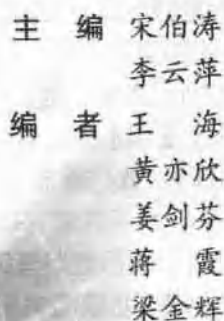 主 编 宋伯涛
李云萍
编 者 王 海
黄亦欣
姜剑芬
蒋 霞
梁金辉